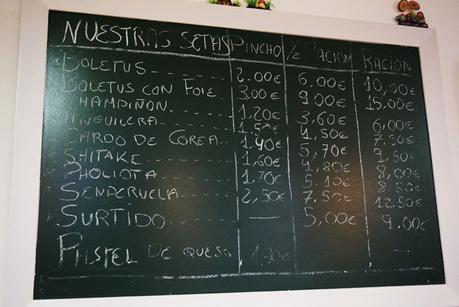 NUESTRAS SETAS PINCHO ½ RACION RACION
BOLETUS 2.00€ 6,00€ 10,00€
BOLETUS CON FOIE 3,00€ 9,00€ 15,00€
CHAMPIÑON. 1,20€ 3,60€ 6,00€
ANGUILERA 1,50€ 4,50€ 7,50€
CARDO DE COREA 1,90€ 5,70€ 9,50€
SHITAKE 1,60€ 4,80€ 8,00€
PHOLIOTA 1,70€ 5,10€ 8,50€
SENDERUELA 2,50€ 7,50€ 12,50€
SURTIDO — 5,00€ 9,00€
PASTEL DE QUESO 1,30€ —